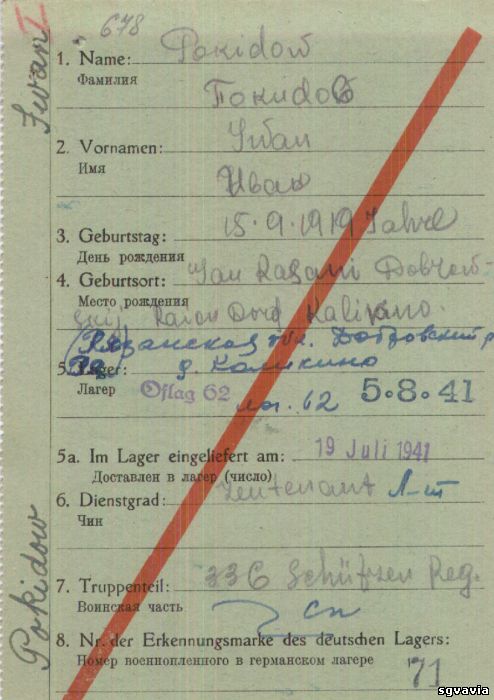 I
678
Iwan
1. Name: Pokidow
Фамилия
Покидов
2. Vornamen: Iwan
Имя
Иван
15.9.1919 Jahre
3. Geburtstag:
День рождения
4. Geburtsort: Dobrow-
Место рождения
skij Raion Dorf Kalikino.
(Рязанская обл. Добровский р
д. Каликино
5. Lager: Oflag 62
Лагер
лаг. 62 5.8.41
5a. Im Lager eingeliefert am: 19 Juli 1941
Доставлен в лагер (число)
6. Dienstgrad: Leutenant Л-т
Чин
7. Truppenteil: 336 Schützen Reg.
Воинская часть
сп
8. Nr. der Erkennungsmarke des deutschen Lagers:
Номер военнопленного в германском лагере
71
Pokidow
sgvavia